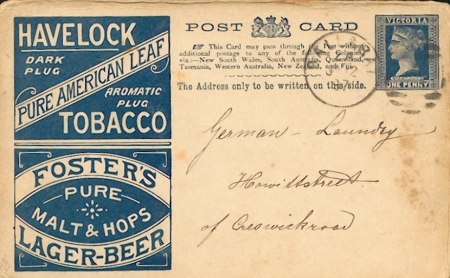 HAVELOCK
DARK PLUG
PURE AMERICAN LEAF
AROMATIC PLUG
TOBACCO
FOSTER'S
PURE
MALT & HOPS
LAGER-BEER
POST CARD
This Card may pass through the Post without
additional postage to any of the following Colonies,
viz.:—New South Wales, South Australia, Queensland,
Tasmania, Western Australia, New Zealand, and Fiji.
The Address only to be written on this side.
VICTORIA
ONE PENNY
German - Laundry
Howittstreet
of Creswickroad